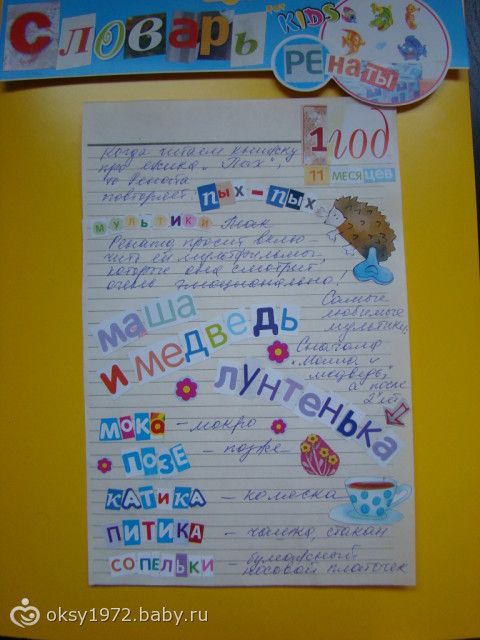 Словарь
KIDS
РЕнаты
1 год
11 месяцев
Когда читаем книжку
про ёжика „Пых",
то Рената
повторяет пых-пых
мультики Так
Рената просит вклю-
чить ей мультфильмы,
которые она смотрит
очень эмоционально!
Самые
любимые
мультики,
Сначала
„Маши и
медведь",
а после
2 лет
маша
и медведь
лунтенька
мока - мокро
позе - позже
катика - коляска
питика - чашка, стакан
сопельки - бумажный
носовой платочек
oksy1972.baby.ru